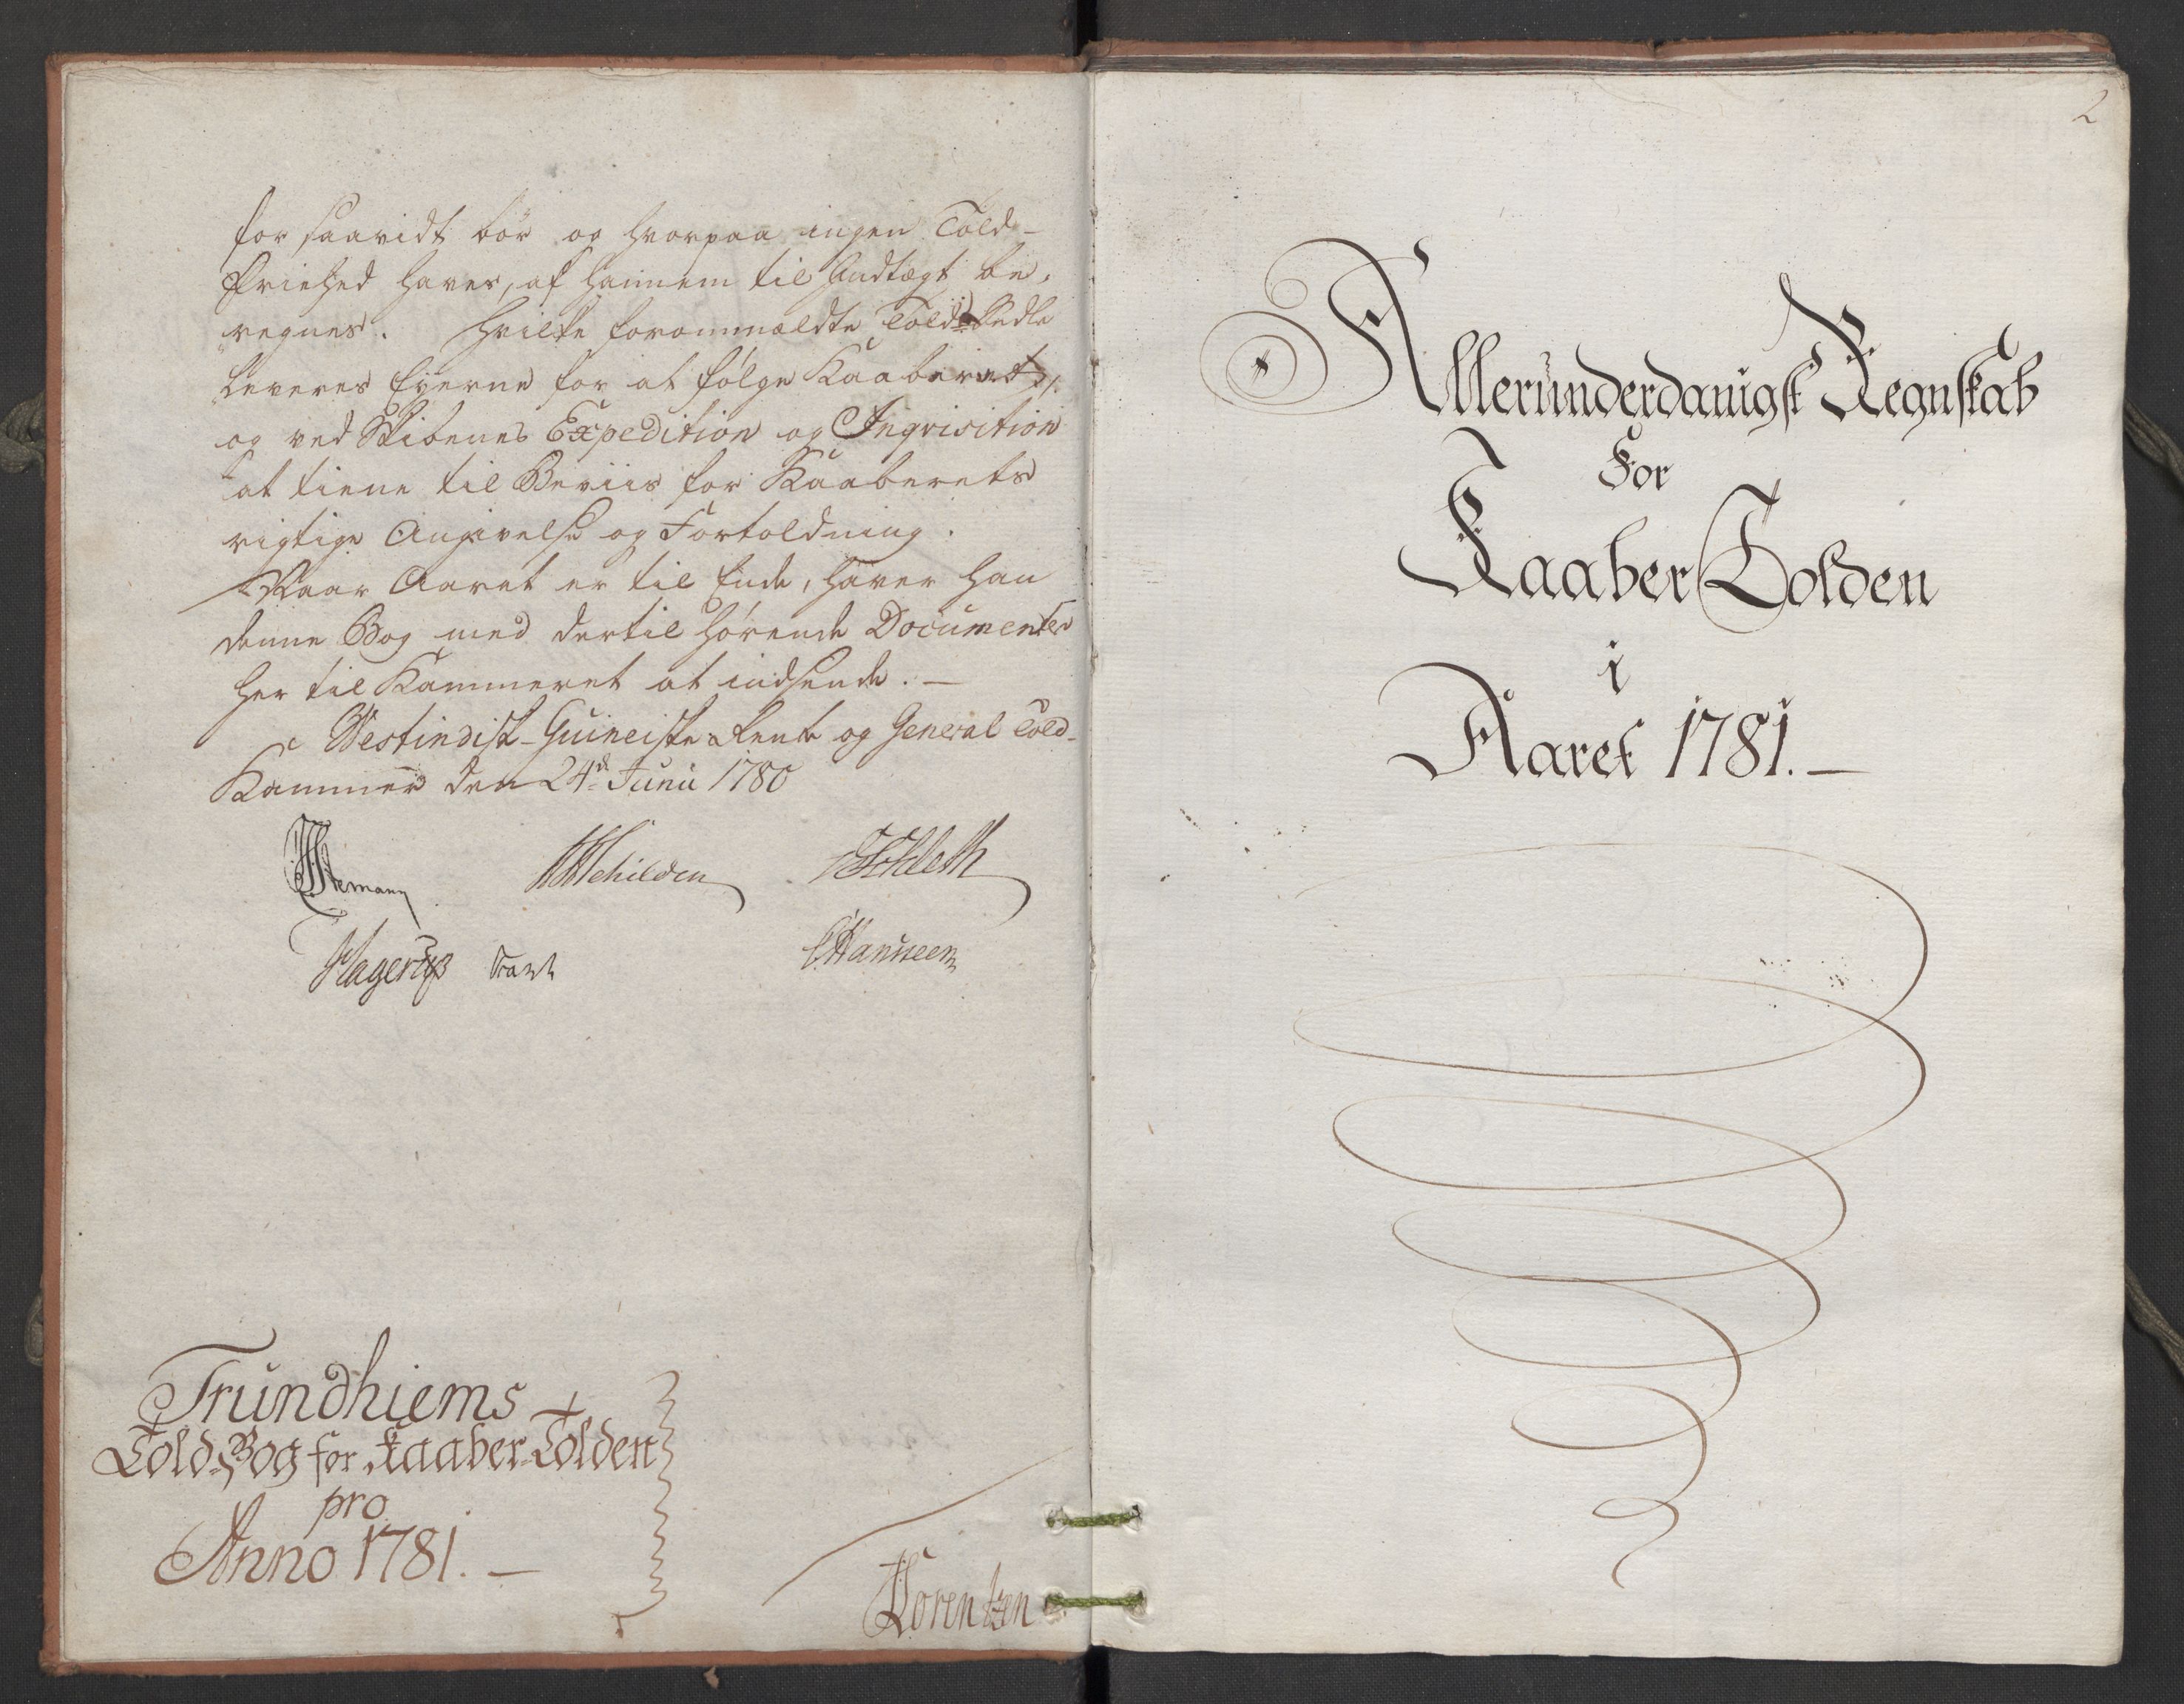 for saavidt bör og hvorpaa ingen Told-
Friehed haves, af hannem til Indtægt be-
regnes. Hvilke forommældte Told-Sedle
leveres Eyerne for at følge Kaaberet,
og ved Skibenes Expedition og Inqvisition
at tiene til Beviis for Kaaberets
rigtige Angivelse og Fortoldning.
Naar Aaret er til Ende, haver han
denne Bog med dertil hörende Documenter
her til Kammeret at indsende. —
Westindisk-Guineiske Rente og General Told-
Kammer den 24de Junii 1780
Schilden
Hagerup
Hanssen
Trundhiems
Told-Bog for Kaaber-Tolden
pro
Anno 1781. —
Lorentzen
2
Allerunderdanigst Regnskab
For
Kaaber Tolden
i
Aaret 1781. —